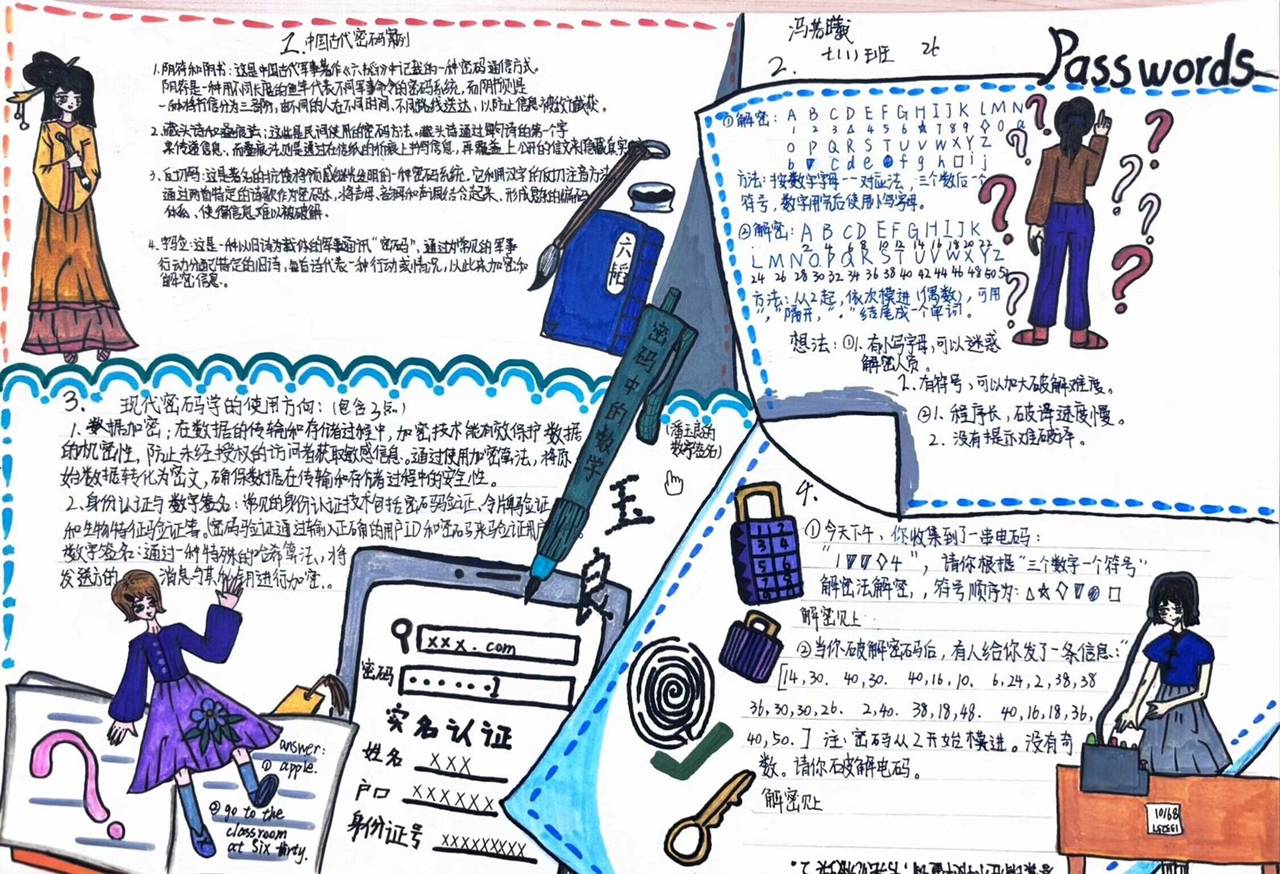 1. 中国古代密码案例
1. 阴符和阴书：这是中国古代军事著作《六韬》中记载的一种密码通信方式。
阴符是一种用不同长度的鱼竿代表不同军事命令的密码系统，而阴书则是
一种将书信分为三部分，由不同的人在不同时间，不同路线送达，以防止信息被敌人截获。
2. 藏头诗和叠痕法：这些是民间使用的密码方法。藏头诗通过每句诗的第一个字
来传递信息，而叠痕法则是通过在信纸的折痕上书写信息，再覆盖上公开的信文来隐藏真实
3. 反切码：这是著名的抗倭将领戚继光发明的一种密码系统，它利用汉字的反切注音方法
通过用着特定的诗歌作为密码本，将声母、韵母和声调结合起来，形成复杂的编码
什么，使得信息难以被破解。
4. 字验：这是一种以旧诗为载体的军事通讯“密码”，通过为常见的军事
行动分配特定的旧诗，每首诗代表一种行动或情况，以此来加密和
解密信息。
六韬
密码中的数学
冯若曦
七(1)班 26
2. Passwords
①解密：A B C D E F G H I J K L M N
1 2 3 △ 4 5 6 ☆ 7 8 9 ◇ 0 a
O P Q R S T U V W X Y Z
b ▼ c d e f g h □ i j
方法：按数字字母一一对应法，三个数后一个
符号，数字用完后使用小写字母。
②解密：A B C D E F G H I J K
2 4 6 8 10 12 14 16 18 20 22
L M N O P Q R S T U V W X Y Z
24 26 28 30 32 34 36 38 40 42 44 46 48 50 52
方法：从2起，依次模进（偶数），可用
“，”隔开，“．”结尾成一个单词。
想法：①1. 有小写字母，可以迷惑
解密人员。
2. 有符号，可以加大破解难度。
②1. 程序长，破译进度慢。
2. 没有提示难破译。
3. 现代密码学的使用方向：(包含3点)
1. 数据加密：在数据的传输和存储过程中，加密技术能有效保护数据
的机密性，防止未经授权的访问者获取敏感信息。通过使用加密算法，将原
始数据转化为密文，确保数据在传输和存储过程中的安全性。
2. 身份认证与数字签名：常见的身份认证技术包括密码验证、令牌验证
和生物特征码验证等。密码验证通过输入正确的用户ID和密码来验证用户
数字签名：通过一种特殊的哈希算法，将
发送方的 消息与其 进行加密。
(潘玉良的
数字签名)
玉
良
xxx.com
密码 ••••••
实名认证
姓名 XXX
户口 XXXXXX
身份证号 XXXXXXXXX
answer:
① apple.
② go to the
classroom
at six thirty.
1 2
3 4
5 6
7 8
4.
①今天下午，你收集到了一串电码：
“1▽▽◇4”，请你根据“三个数字一个符号”
解密法解密，符号顺序为：△☆◇▽ □
解密见上
②当你破解密码后，有人给你发了一条信息：“
[14,30. 40,30. 40,16,10. 6,24,2,38,38
36,30,30,26. 2,40. 38,18,48. 40,16,18,36,
40,50.] 注：密码从2开始模进。没有奇
数。请你破解电码。
解密见上